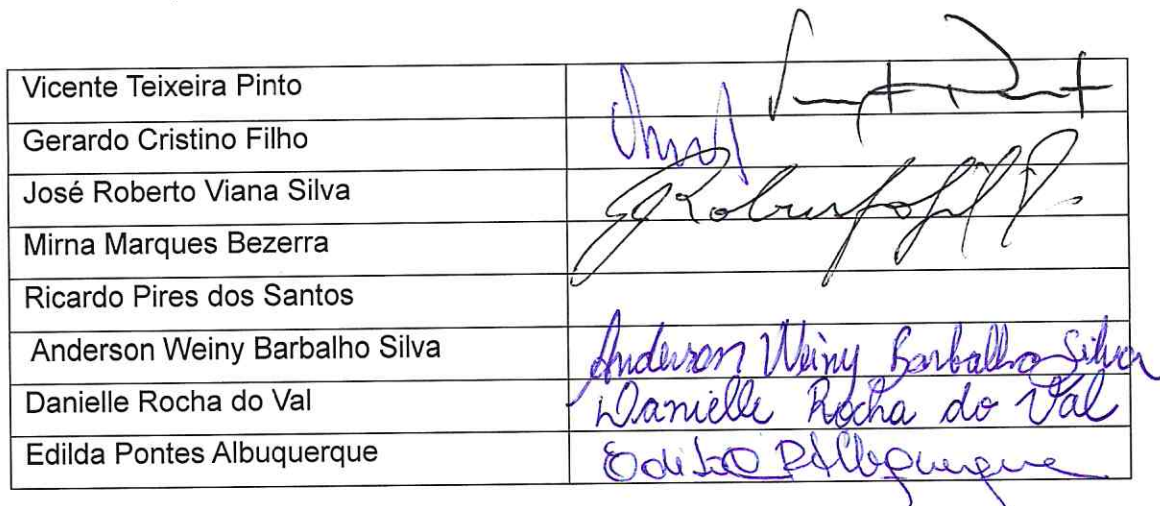 Vicente Teixeira Pinto
Gerardo Cristino Filho
José Roberto Viana Silva
Mirna Marques Bezerra
Ricardo Pires dos Santos
Anderson Weiny Barbalho Silva Anderson Weiny Barbalho Silva
Danielle Rocha do Val Danielle Rocha do Val
Edilda Pontes Albuquerque